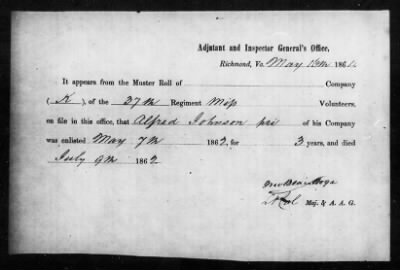 Adjutant and Inspector General's Office,
Richmond, Va. May 186
It appears from the Muster Roll of Company
(K), of the 37th Regiment Mip Volunteers.
on file in this office, that Alfred Johnson pri of his Company
was enlisted May 7th 1862, for 3 years, and died
July 9th 1862
Maj. & A. A. G.